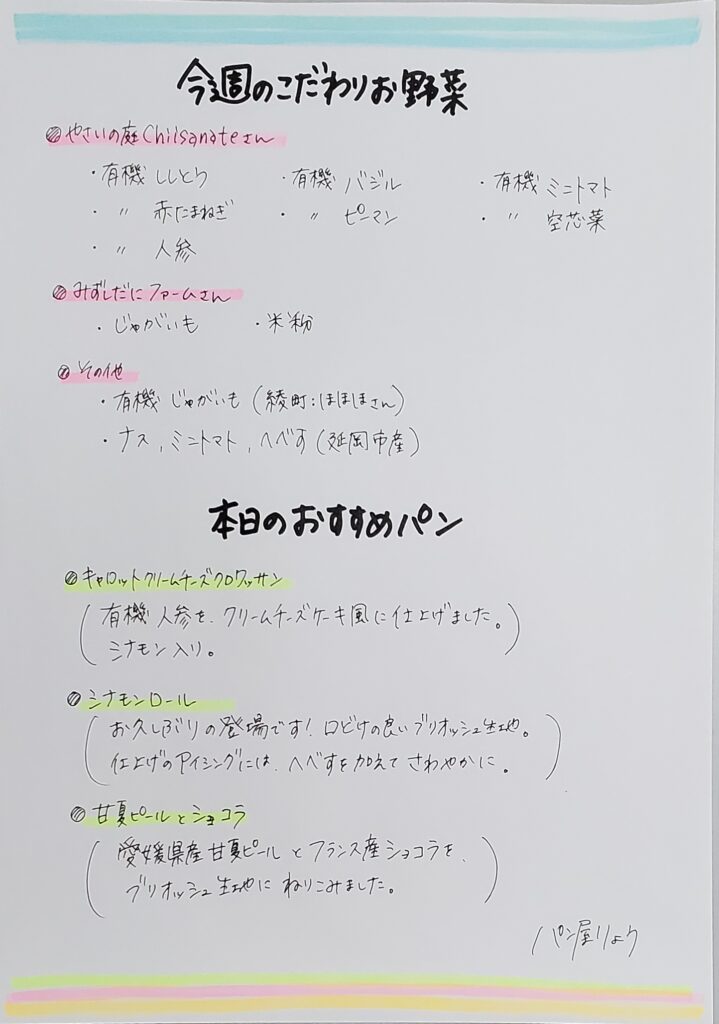 今週のこだわりお野菜
やさいの庭Chiisanateさん
・有機 ししとう ・有機 バジル ・有機 ミニトマト
・〃 赤たまねぎ ・〃 ピーマン ・〃 空芯菜
・〃 人参
みずしだにファームさん
・じゃがいも ・米粉
その他
・有機 じゃがいも (綾町:ほほほさん)
・ナス, ミニトマト, へべす (延岡市産)
本日のおすすめパン
キャロットクリームチーズクロワッサン
(有機 人参を、クリームチーズケーキ風に仕上げました。
シナモン入り。)
シナモンロール
(お久しぶりの登場です! 口どけの良いブリオッシュ生地。
仕上げのアイシングには、へべすを加えて さわやかに。)
甘夏ピールとショコラ
(愛媛県産甘夏ピールとフランス産ショコラを、
ブリオッシュ生地に ねりこみました。)
パン屋りょう